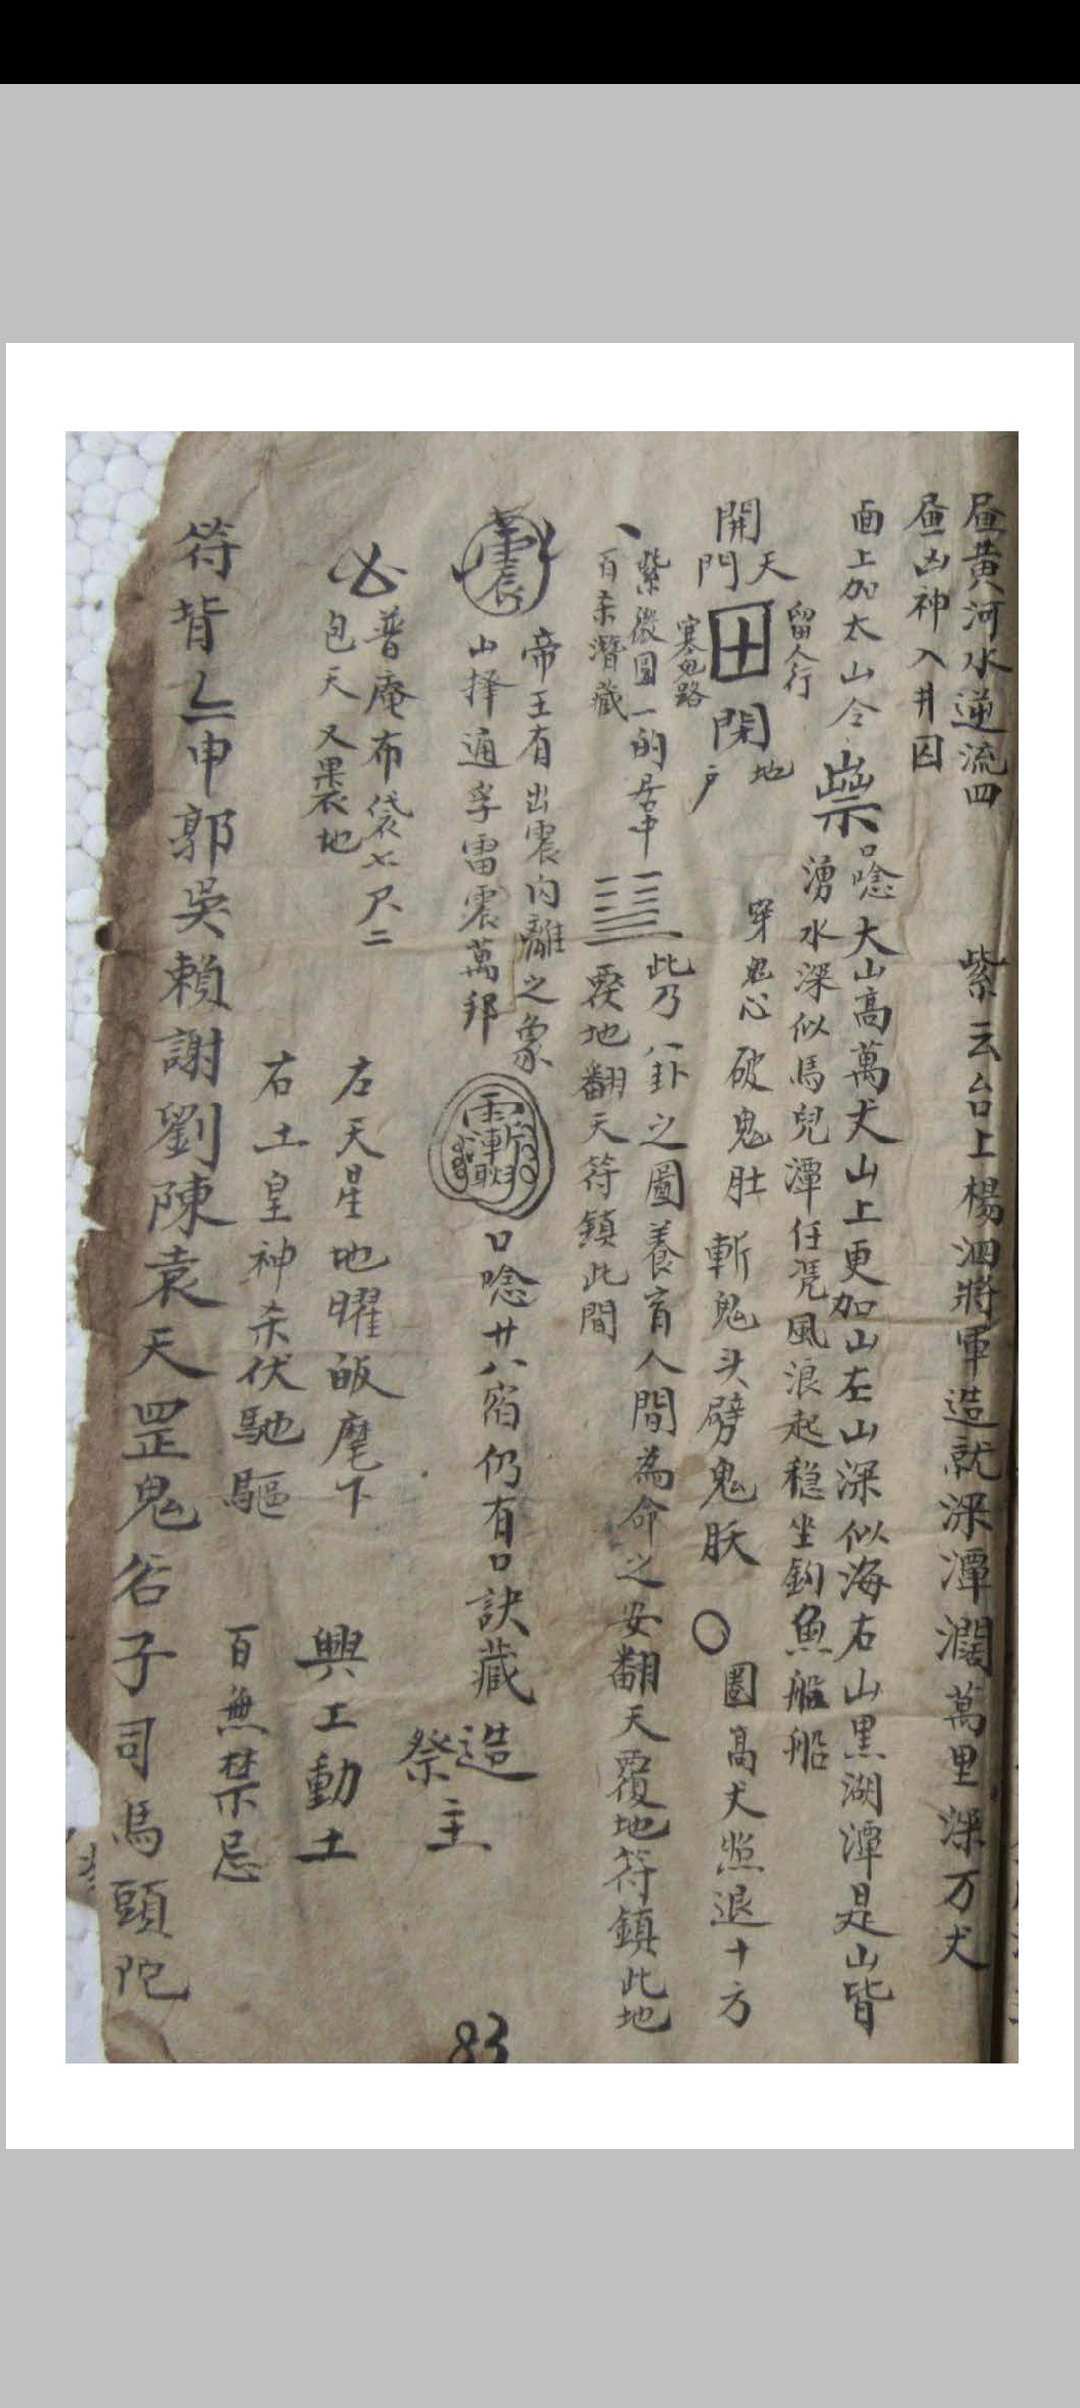 昼黄河水逆流四
昼凶神入井囚
紫云台上楊泗將軍造就深潭濶萬里深万丈
面上加太山令
口唸大山高萬丈山上更加山左山深似海右山黒湖潭是山皆
湧水深似馬兒潭任凭風浪起稳坐釣魚船船
開天門
留人行
塞鬼路
田
閉地户
穿鬼心破鬼肚斬鬼头劈鬼肤
圏高丈煞退十方
紫微圓一的居中
百杀潛藏
此乃八卦之圖養育人間為命之安翻天覆地符鎮此地
覆地翻天符鎮此間
震
帝王有出震向離之象
山择通孚雷震萬邦
口唸廿八宿仍有口訣藏
造主
祭
普庵布袋七尺二
包天又裹地
左天星地曜皈麾下
右土皇神杀伏馳驅
興工動土
百無禁忌
符背
申郭吳賴謝劉陳袁天罡鬼谷子司馬頭陀
83